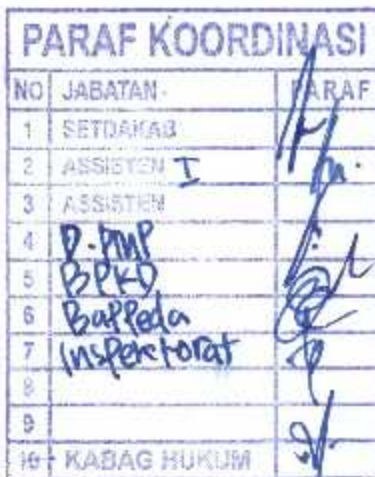 PARAF KOORDINASI
NO JABATAN PARAF
1 SETDAKAB
2 ASSISTEN I
3 ASSISTEN
4 D.PMP
5 BPKD
6 Bappeda
7 Inspektorat
8
9
10 KABAG HUKUM